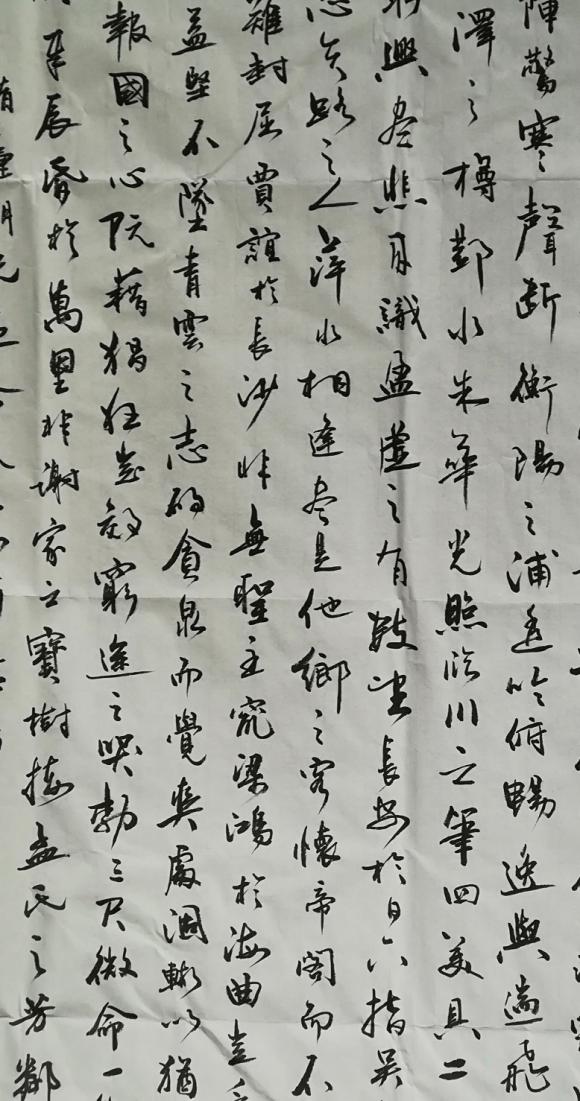 陣驚寒聲斷衡陽之浦遙吟俯暢逸興遄飛
澤之樽鄴水朱華光照臨川之筆四美具二
興盡悲識盈虛之有數望長安於日下指吳
悲失路之人萍水相逢盡是他鄉之客懷帝閽而不
難封屈賈誼於長沙非無聖主竄梁鴻於海曲豈
益堅不墜青雲之志酌貪泉而覺爽處涸轍以猶
報國之心阮藉猖狂豈效窮途之哭勃三尺微命一
奉晨昏於萬里非謝家之寶樹接孟氏之芳鄰